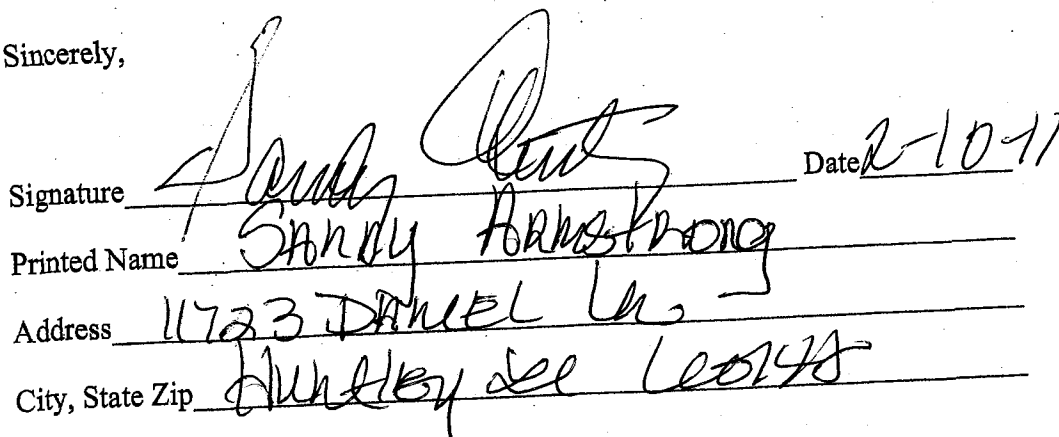 Sincerely,
Signature Date 2-10-17
Printed Name SANDY ARMSTRONG
Address 11723 DANIEL Ln.
City, State Zip Huntley Ill 60142